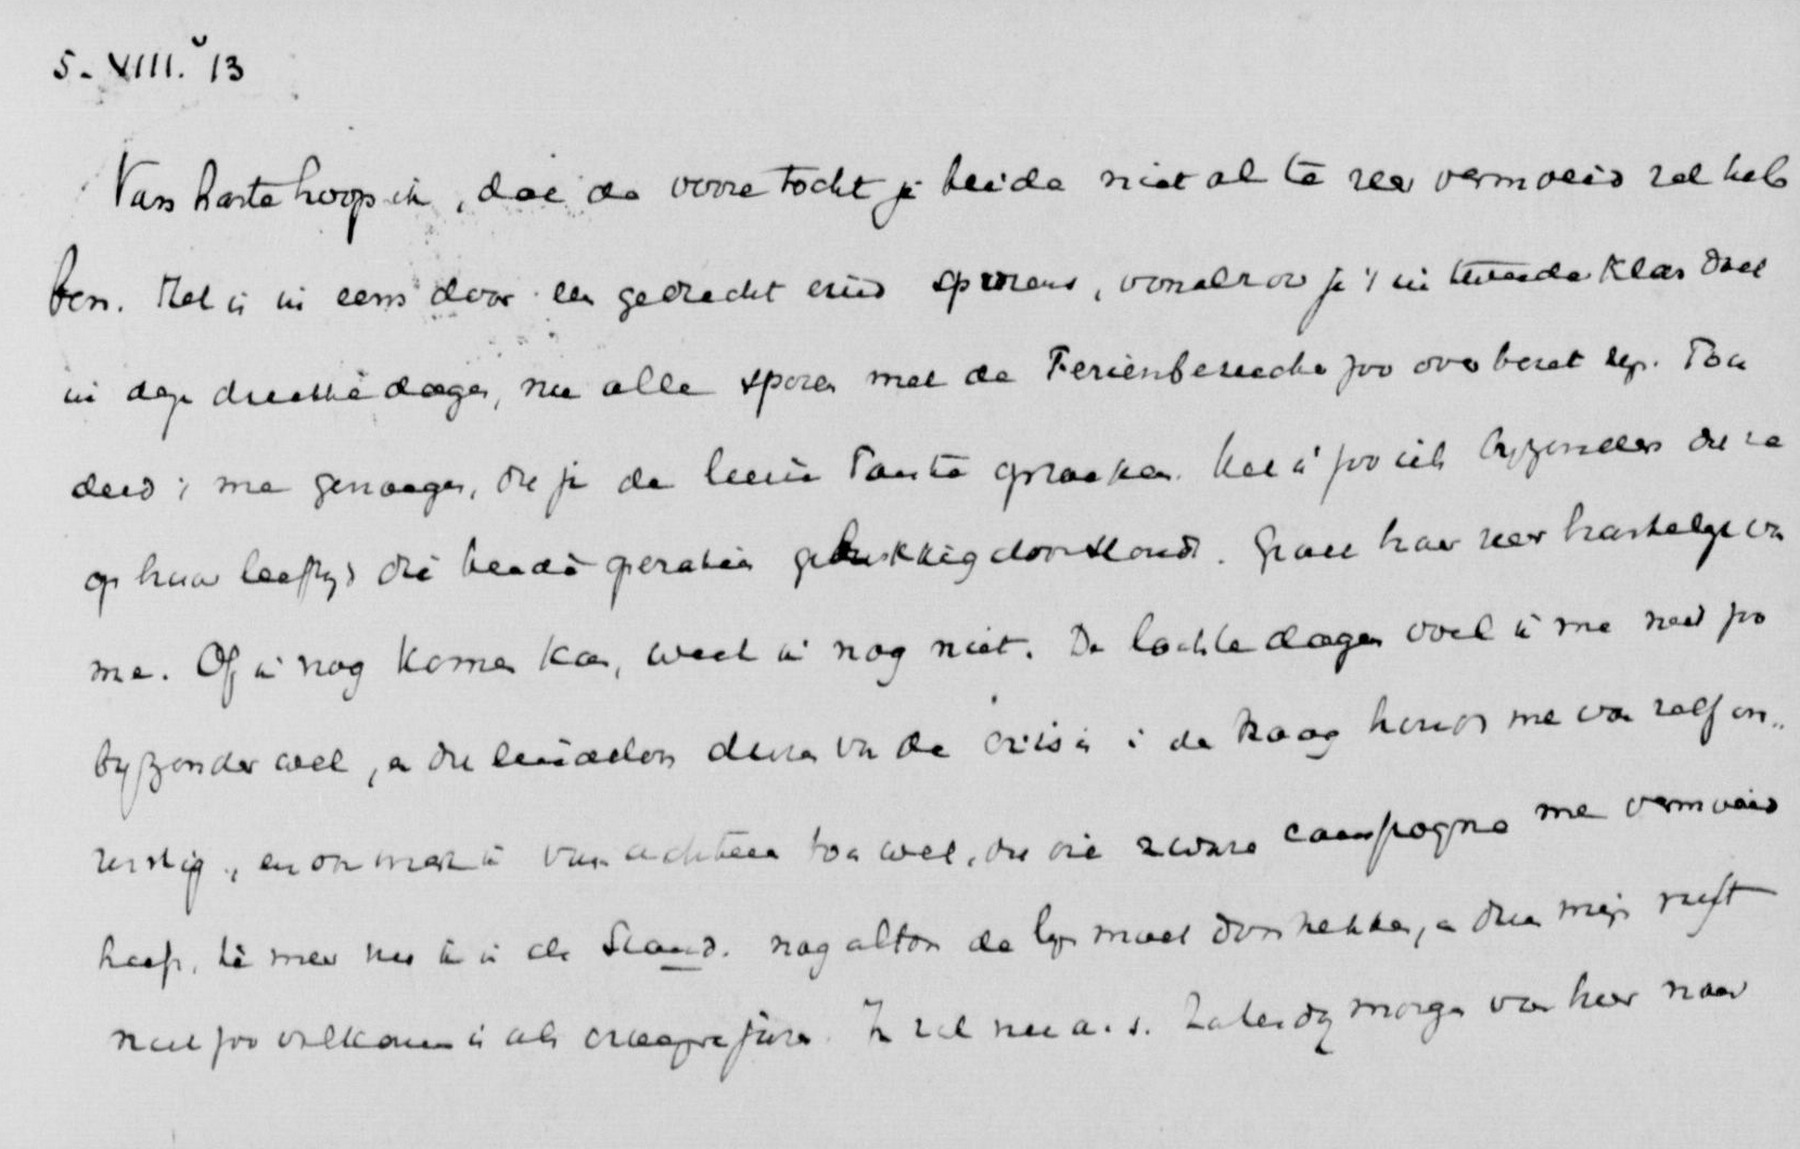 5. VIII. '13
Van harte hoop ik, dat de verre tocht je beide niet al te zeer vermoeid zal heb
ben. Het is in eens door een gestrekt eind sporens, vooral zoo je 't in tweede klas doet
in deze drukke dagen, nu alle sporen met de Ferienbesuche zoo overbezet zijn. Toch
deed 't me genoegen, dat je de lieve Tante spraken. Het is zoo iets byzonders dat ze
op haar leeftyd die beide operatiën gelukkig doorstond. Groet haar zeer hartelyk van
me. Of ik nog komen kan, weet ik nog niet. De laatste dagen voel ik me niet zoo
byzonder wel, en dat eindeloos duren van de crisis in de Haag houdt me van zelf on..
rustig, en dan merk ik van achteren toch wel, dat die zware campagne me vermoeid
heeft, te meer nu ik in de Stand. nog altoos de lyn moet doortrekken, en dus mijn rust
niet zoo volkomen is als in vroegere jaren. Ik zal nu a.s. Zaterdag morgen van hier naar